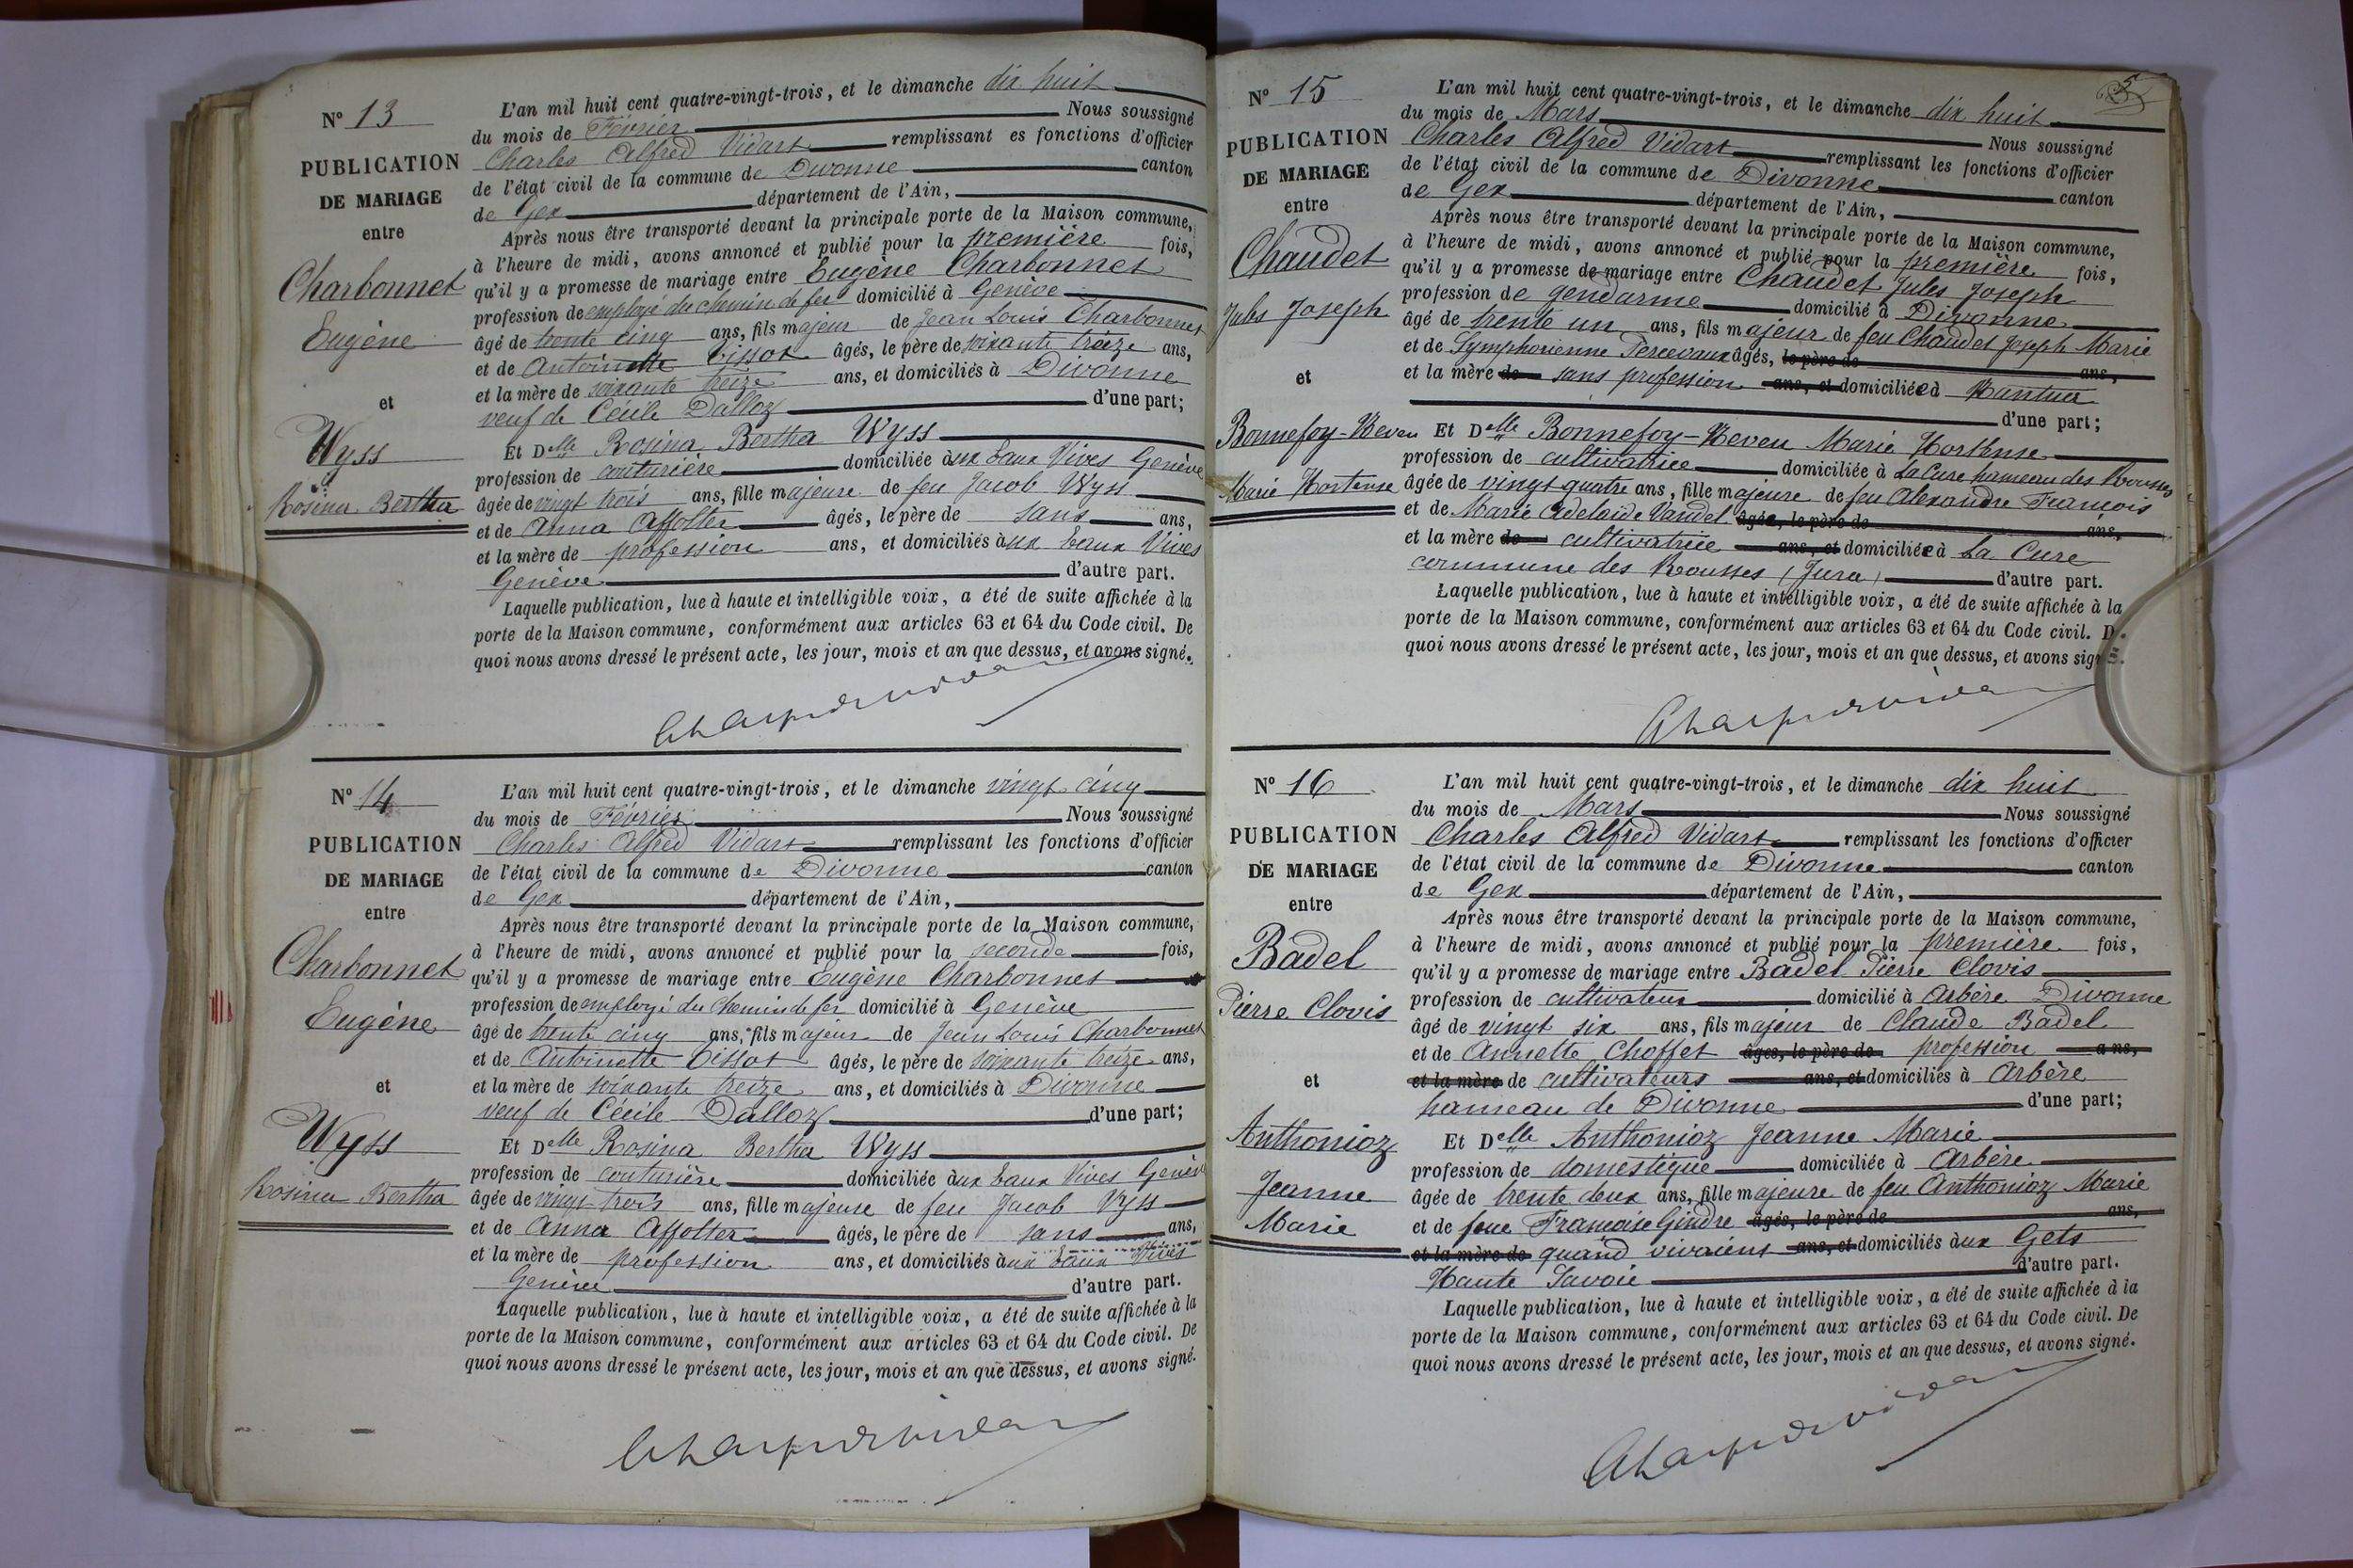 N° 13
PUBLICATION
DE MARIAGE
entre
Charbonnet
Eugène
et
Wyss
Rosina Bertha
L'an mil huit cent quatre-vingt-trois, et le dimanche dix huit
du mois de Février Nous soussigné
Charles Alfred Vidart remplissant es fonctions d'officier
de l'état civil de la commune de Divonne canton
de Gex département de l'Ain,
Après nous être transporté devant la principale porte de la Maison commune,
à l'heure de midi, avons annoncé et publié pour la première fois,
qu'il y a promesse de mariage entre Eugène Charbonnet
profession de employé du chemin de fer domicilié à Genève
âgé de trente cinq ans, fils majeur de Jean Louis Charbonnet
et de Antoinette âgés, le père de soixante treize ans,
et la mère de soixante treize ans, et domiciliés à Divonne
veuf de Cécile Dalloz d'une part;
Et Delle Rosina Bertha Wyss
profession de couturière domiciliée aux Eaux Vives Genève
âgée de vingt trois ans, fille majeure de feu Jacob Wyss
et de Anna Affolter âgés, le père de sans ans,
et la mère de profession ans, et domiciliés aux Eaux Vives
Genève d'autre part.
Laquelle publication, lue à haute et intelligible voix, a été de suite affichée à la
porte de la Maison commune, conformément aux articles 63 et 64 du Code civil. De
quoi nous avons dressé le présent acte, les jour, mois et an que dessus, et avons signé.
N° 14
PUBLICATION
DE MARIAGE
entre
Charbonnet
Eugène
et
Wyss
Rosina Bertha
L'an mil huit cent quatre-vingt-trois, et le dimanche vingt cinq
du mois de Février Nous soussigné
Charles Alfred Vidart remplissant les fonctions d'officier
de l'état civil de la commune de Divonne canton
de Gex département de l'Ain,
Après nous être transporté devant la principale porte de la Maison commune,
à l'heure de midi, avons annoncé et publié pour la seconde fois,
qu'il y a promesse de mariage entre Eugène Charbonnet
profession de employé du chemin de fer domicilié à Genève
âgé de trente cinq ans, fils majeur de Jean Louis Charbonnet
et de Antoinette âgés, le père de soixante treize ans,
et la mère de soixante treize ans, et domiciliés à Divonne
veuf de Cécile Dalloz d'une part;
Et Delle Rosina Bertha Wyss
profession de couturière domiciliée aux Eaux Vives Genève
âgée de vingt trois ans, fille majeure de feu Jacob Wyss
et de Anna Affolter âgés, le père de sans ans,
et la mère de profession ans, et domiciliés aux Eaux Vives
Genève d'autre part.
Laquelle publication, lue à haute et intelligible voix, a été de suite affichée à la
porte de la Maison commune, conformément aux articles 63 et 64 du Code civil. De
quoi nous avons dressé le présent acte, les jour, mois et an que dessus, et avons signé.
5
N° 15
PUBLICATION
DE MARIAGE
entre
Chaudet
Jules Joseph
et
Bonnefoy-Keveu
Marie Hortense
L'an mil huit cent quatre-vingt-trois, et le dimanche dix huit
du mois de Mars Nous soussigné
Charles Alfred Vidart remplissant les fonctions d'officier
de l'état civil de la commune de Divonne canton
de Gex département de l'Ain,
Après nous être transporté devant la principale porte de la Maison commune,
à l'heure de midi, avons annoncé et publié pour la première fois,
qu'il y a promesse de mariage entre Chaudet Jules Joseph
profession de gendarme domicilié à Divonne
âgé de trente un ans, fils majeur de feu Chaudet Joseph Marie
et de Symphorienne Percevaux âgés, le père de ans,
et la mère de sans profession ans, et domiciliée à Nantua
d'une part;
Et Delle Bonnefoy-Keveu Marie Hortense
profession de cultivatrice domiciliée à La Cure hameau des Rousses
âgée de vingt quatre ans, fille majeure de feu Alexandre François
et de Marie Adélaïde Vandel âgés, le père de ans,
et la mère de cultivatrice ans, et domiciliée à La Cure
commune des Rousses (Jura) d'autre part.
Laquelle publication, lue à haute et intelligible voix, a été de suite affichée à la
porte de la Maison commune, conformément aux articles 63 et 64 du Code civil. De
quoi nous avons dressé le présent acte, les jour, mois et an que dessus, et avons signé.
N° 16
PUBLICATION
DE MARIAGE
entre
Badel
Pierre Clovis
et
Anthonioz
Jeanne
Marie
L'an mil huit cent quatre-vingt-trois, et le dimanche dix huit
du mois de Mars Nous soussigné
Charles Alfred Vidart remplissant les fonctions d'officier
de l'état civil de la commune de Divonne canton
de Gex département de l'Ain,
Après nous être transporté devant la principale porte de la Maison commune,
à l'heure de midi, avons annoncé et publié pour la première fois,
qu'il y a promesse de mariage entre Badel Pierre Clovis
profession de cultivateur domicilié à Arbère Divonne
âgé de vingt six ans, fils majeur de Claude Badel
et de Annette Choffet âgés, le père de profession ans,
et la mère de cultivateurs ans, et domiciliés à Arbère
hameau de Divonne d'une part;
Et Delle Anthonioz Jeanne Marie
profession de domestique domiciliée à Arbère
âgée de trente deux ans, fille majeure de feu Anthonioz Marie
et de feue Françoise Gindre âgés, le père de ans,
et la mère de quand vivaient ans, et domiciliés aux Gets
Haute Savoie d'autre part.
Laquelle publication, lue à haute et intelligible voix, a été de suite affichée à la
porte de la Maison commune, conformément aux articles 63 et 64 du Code civil. De
quoi nous avons dressé le présent acte, les jour, mois et an que dessus, et avons signé.